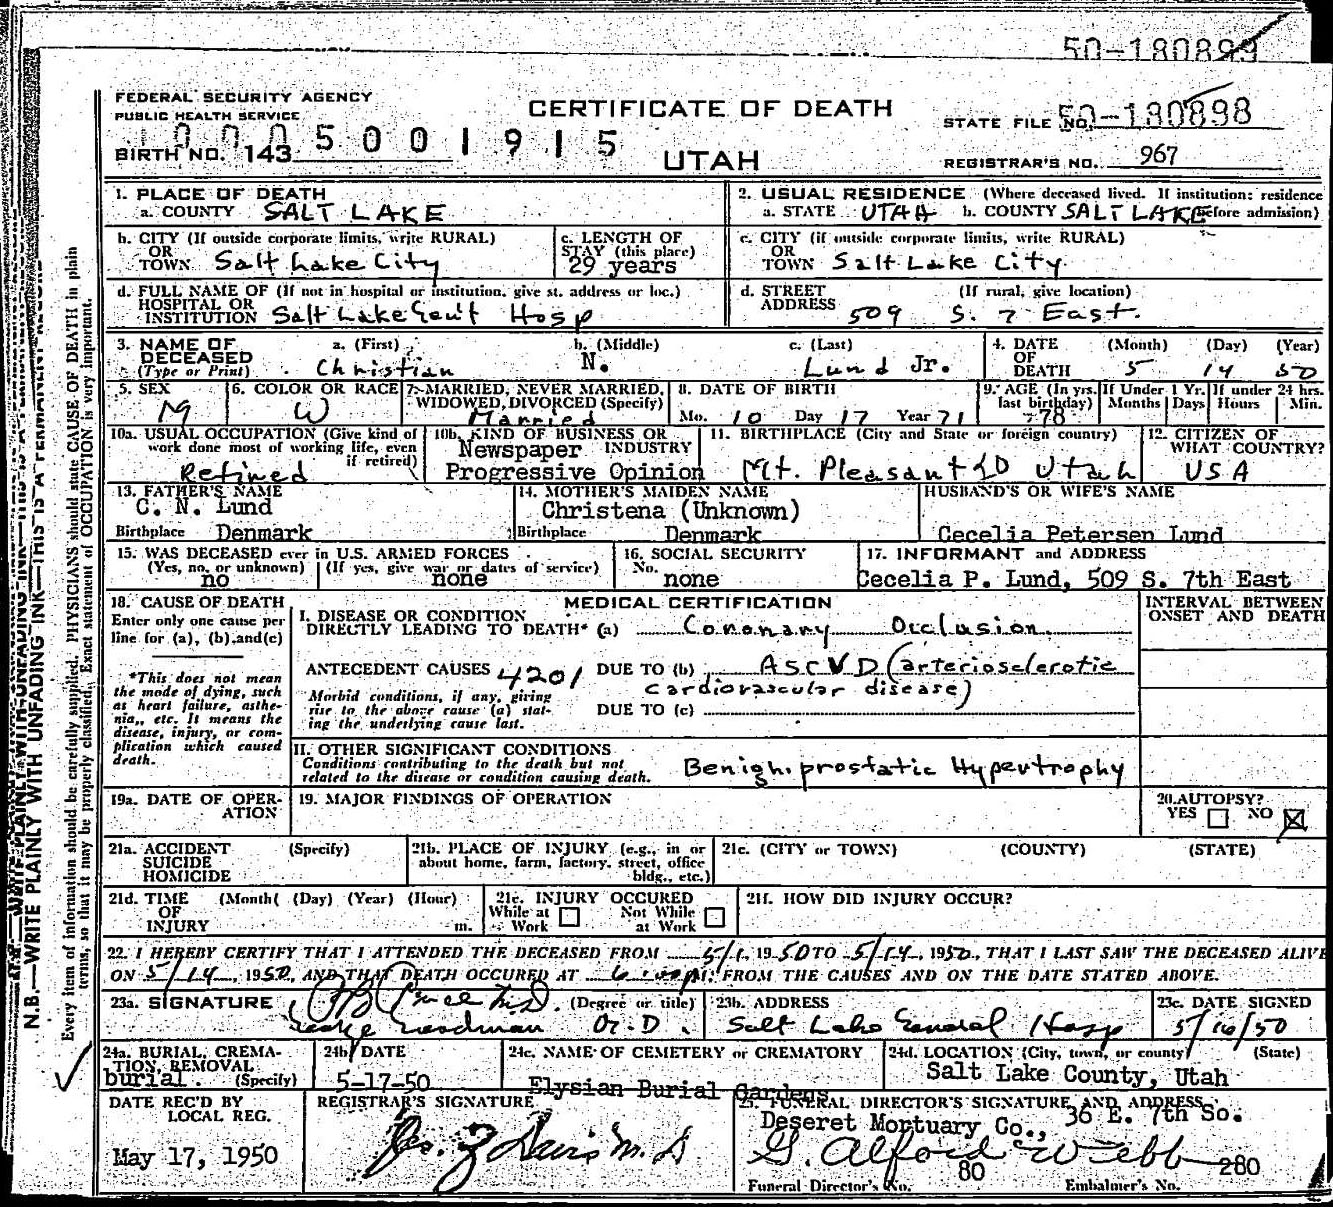 50-180899
FEDERAL SECURITY AGENCY
PUBLIC HEALTH SERVICE
CERTIFICATE OF DEATH
UTAH
STATE FILE NO. 50-180898
BIRTH NO. 143
0005001915
REGISTRAR'S NO. 967
N.B.—WRITE PLAINLY WITH UNFADING INK—THIS IS A PERMANENT
Every item of information should be carefully supplied. PHYSICIANS should state CAUSE OF DEATH in plain
terms, so that it may be properly classified. Exact statement of OCCUPATION is very important.
1. PLACE OF DEATH
a. COUNTY SALT LAKE
2. USUAL RESIDENCE (Where deceased lived. If institution: residence
a. STATE UTAH b. COUNTY SALT LAKE before admission)
b. CITY (If outside corporate limits, write RURAL)
OR
TOWN Salt Lake City
c. LENGTH OF
STAY (this place)
29 years
c. CITY (if outside corporate limits, write RURAL)
OR
TOWN Salt Lake City
d. FULL NAME OF (If not in hospital or institution, give st. address or loc.)
HOSPITAL OR
INSTITUTION Salt Lake Gen't Hosp
d. STREET (If rural, give location)
ADDRESS 509 S. 7 East.
3. NAME OF DECEASED (Type or Print)
a. (First) b. (Middle) c. (Last)
Christian N. Lund Jr.
4. DATE OF DEATH (Month) (Day) (Year)
5 14 50
5. SEX
M
6. COLOR OR RACE
W
7. MARRIED, NEVER MARRIED,
WIDOWED, DIVORCED (Specify)
Married
8. DATE OF BIRTH
Mo. 10 Day 17 Year 71
9. AGE (In yrs. last birthday)
78
If Under 1 Yr. Months Days
If under 24 hrs. Hours Min.
10a. USUAL OCCUPATION (Give kind of
work done most of working life, even
if retired)
Retired
10b. KIND OF BUSINESS OR
INDUSTRY
Newspaper
Progressive Opinion
11. BIRTHPLACE (City and State or foreign country)
Mt. Pleasant Utah
12. CITIZEN OF
WHAT COUNTRY?
USA
13. FATHER'S NAME
C. N. Lund
Birthplace Denmark
14. MOTHER'S MAIDEN NAME
Christena (Unknown)
Birthplace Denmark
HUSBAND'S OR WIFE'S NAME
Cecelia Petersen Lund
15. WAS DECEASED ever in U.S. ARMED FORCES
(Yes, no, or unknown) (If yes, give war or dates of service)
no none
16. SOCIAL SECURITY
No. none
17. INFORMANT and ADDRESS
Cecelia P. Lund, 509 S. 7th East
18. CAUSE OF DEATH
Enter only one cause per
line for (a), (b) and (c)
*This does not mean
the mode of dying, such
as heart failure, asthe-
nia, etc. It means the
disease, injury, or com-
plication which caused
death.
MEDICAL CERTIFICATION
INTERVAL BETWEEN
ONSET AND DEATH
I. DISEASE OR CONDITION
DIRECTLY LEADING TO DEATH* (a) Coronary Occlusion
ANTECEDENT CAUSES 4201 DUE TO (b) ASCVD (arteriosclerotic
cardiovascular disease)
Morbid conditions, if any, giving
rise to the above cause (a) stat-
ing the underlying cause last.
DUE TO (c)
II. OTHER SIGNIFICANT CONDITIONS
Conditions contributing to the death but not
related to the disease or condition causing death.
Benign prostatic Hypertrophy
19a. DATE OF OPER-
ATION
19. MAJOR FINDINGS OF OPERATION
20. AUTOPSY?
YES NO
21a. ACCIDENT (Specify)
SUICIDE
HOMICIDE
21b. PLACE OF INJURY (e.g., in or
about home, farm, factory, street, office
bldg., etc.)
21c. (CITY or TOWN) (COUNTY) (STATE)
21d. TIME (Month( (Day) (Year) (Hour)
OF
INJURY m.
21e. INJURY OCCURED
While at Work Not While at Work
21f. HOW DID INJURY OCCUR?
22. I HEREBY CERTIFY THAT I ATTENDED THE DECEASED FROM 5/1, 1950 TO 5/14, 1950, THAT I LAST SAW THE DECEASED ALIVE
ON 5/14, 1950, AND THAT DEATH OCCURED AT FROM THE CAUSES AND ON THE DATE STATED ABOVE.
23a. SIGNATURE (Degree or title)
M.D.
George Goodman
23b. ADDRESS
Salt Lake General Hosp
23c. DATE SIGNED
5/16/50
24a. BURIAL, CREMA-
TION, REMOVAL
burial (Specify)
24b. DATE
5-17-50
24c. NAME OF CEMETERY or CREMATORY
Elysian Burial Gardens
24d. LOCATION (City, town, or county) (State)
Salt Lake County, Utah
DATE REC'D BY
LOCAL REG.
May 17, 1950
REGISTRAR'S SIGNATURE
25. FUNERAL DIRECTOR'S SIGNATURE AND ADDRESS
Deseret Mortuary Co., 36 E. 7th So.
G. Alford Webb
80 280
Funeral Director's No. Embalmer's No.